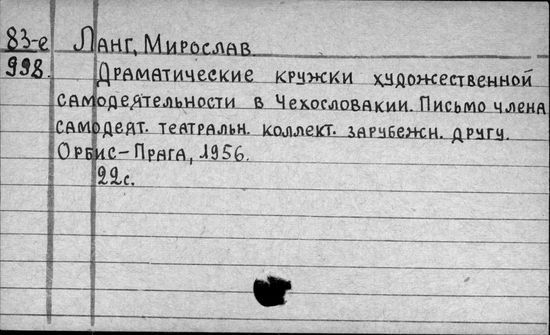 83-е Ланг, Мирослав
998. Драматические кружки художественной
самодеятельности в Чехословакии. Письмо члена
самодеят. театральн. коллект. зарубежн. другу.
Орбис-Прага, 1956.
22с.